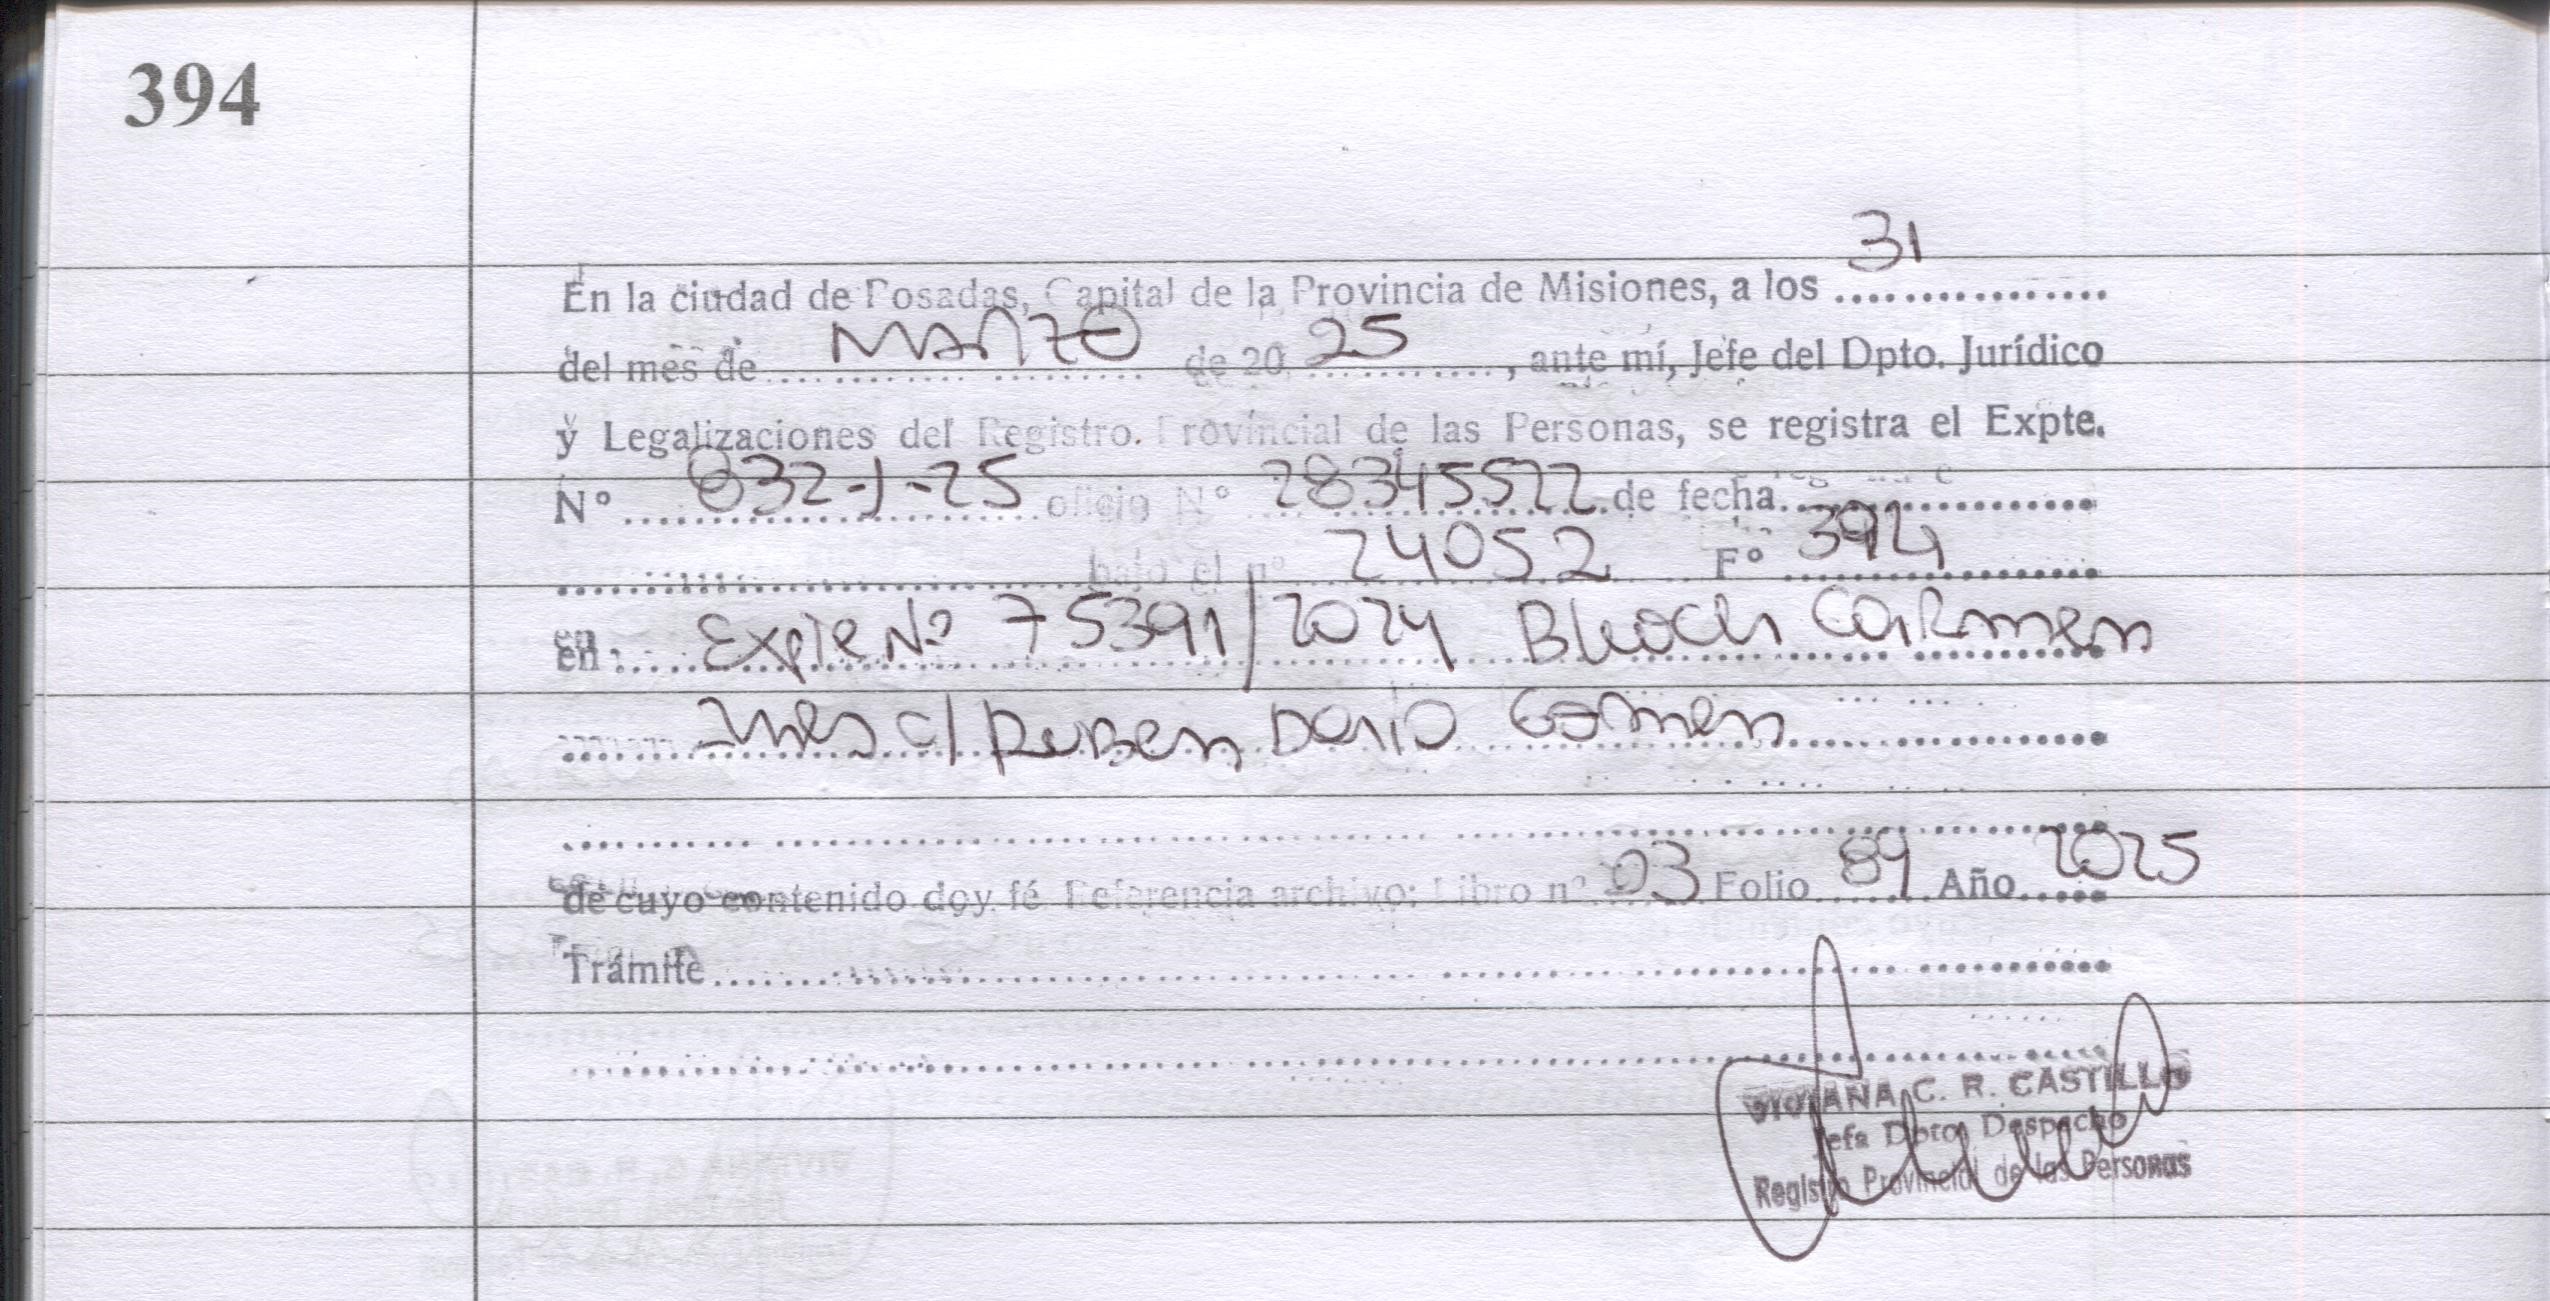 394
31
En la ciudad de Posadas, Capital de la Provincia de Misiones, a los ................
del mes de MARZO de 20 25, ante mí, Jefe del Dpto. Jurídico
y Legalizaciones del Registro Provincial de las Personas, se registra el Expte.
N° 832-J-25 oficio N° 28345522 de fecha
bajo el n° 24052 F° 394
en Expte No 75391/2024 Carmen
Ines c/ Ruben Dario
de cuyo contenido doy fé Referencia archivo: Libro n° 03 Folio 89 Año 2025
Trámite
VIVIANA C. R. CASTILLO
Jefa Dpto. Despacho
Registro Provincial de las Personas